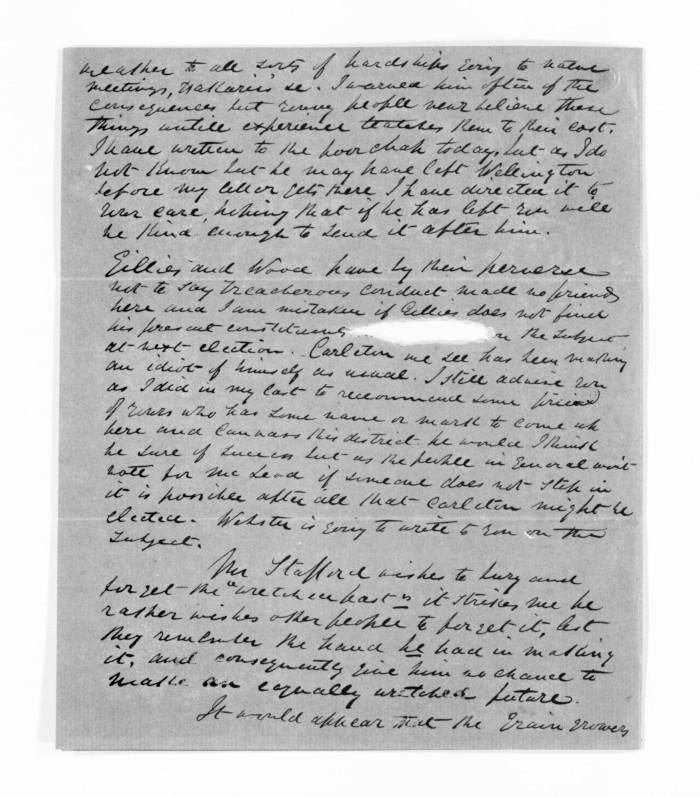 weather to all sorts of hardships going to native
meetings, Wakaries &c. I warned him often of the
consequences but young people never believe these
things untill experience teatches them to their cost.
I have written to the poor chap today but as I do
not know but he may have left Wellington
before my letter gets there I have directed it to
your care, hoping that if he has left you will
be kind enough to send it after him.
Gillies and Wood have by their perverse
not to say treacherous conduct made no friends
here and I am mistaken if Gillies does not find
his present constituents on the subject
at next election. Carleton we see has been making
an idiot of himself as usual. I still advise you
as I did in my last to recommend some friend
of yours who has some name or mark to come up
here and canvass this district he would I think
be sure of success but as the people in general won't
vote for Mc Leod if someone does not step in
it is possible after all that Carleton might be
elected. Webster is going to write to you on the
subject.
Mr Stafford wishes to bury and
forget the "wretched past" it strikes me he
rather wishes other people to forget it, lest
they remember the hand he had in making
it, and consequently give him no chance to
make an equally wretched future.
It would appear that the Grain Growers